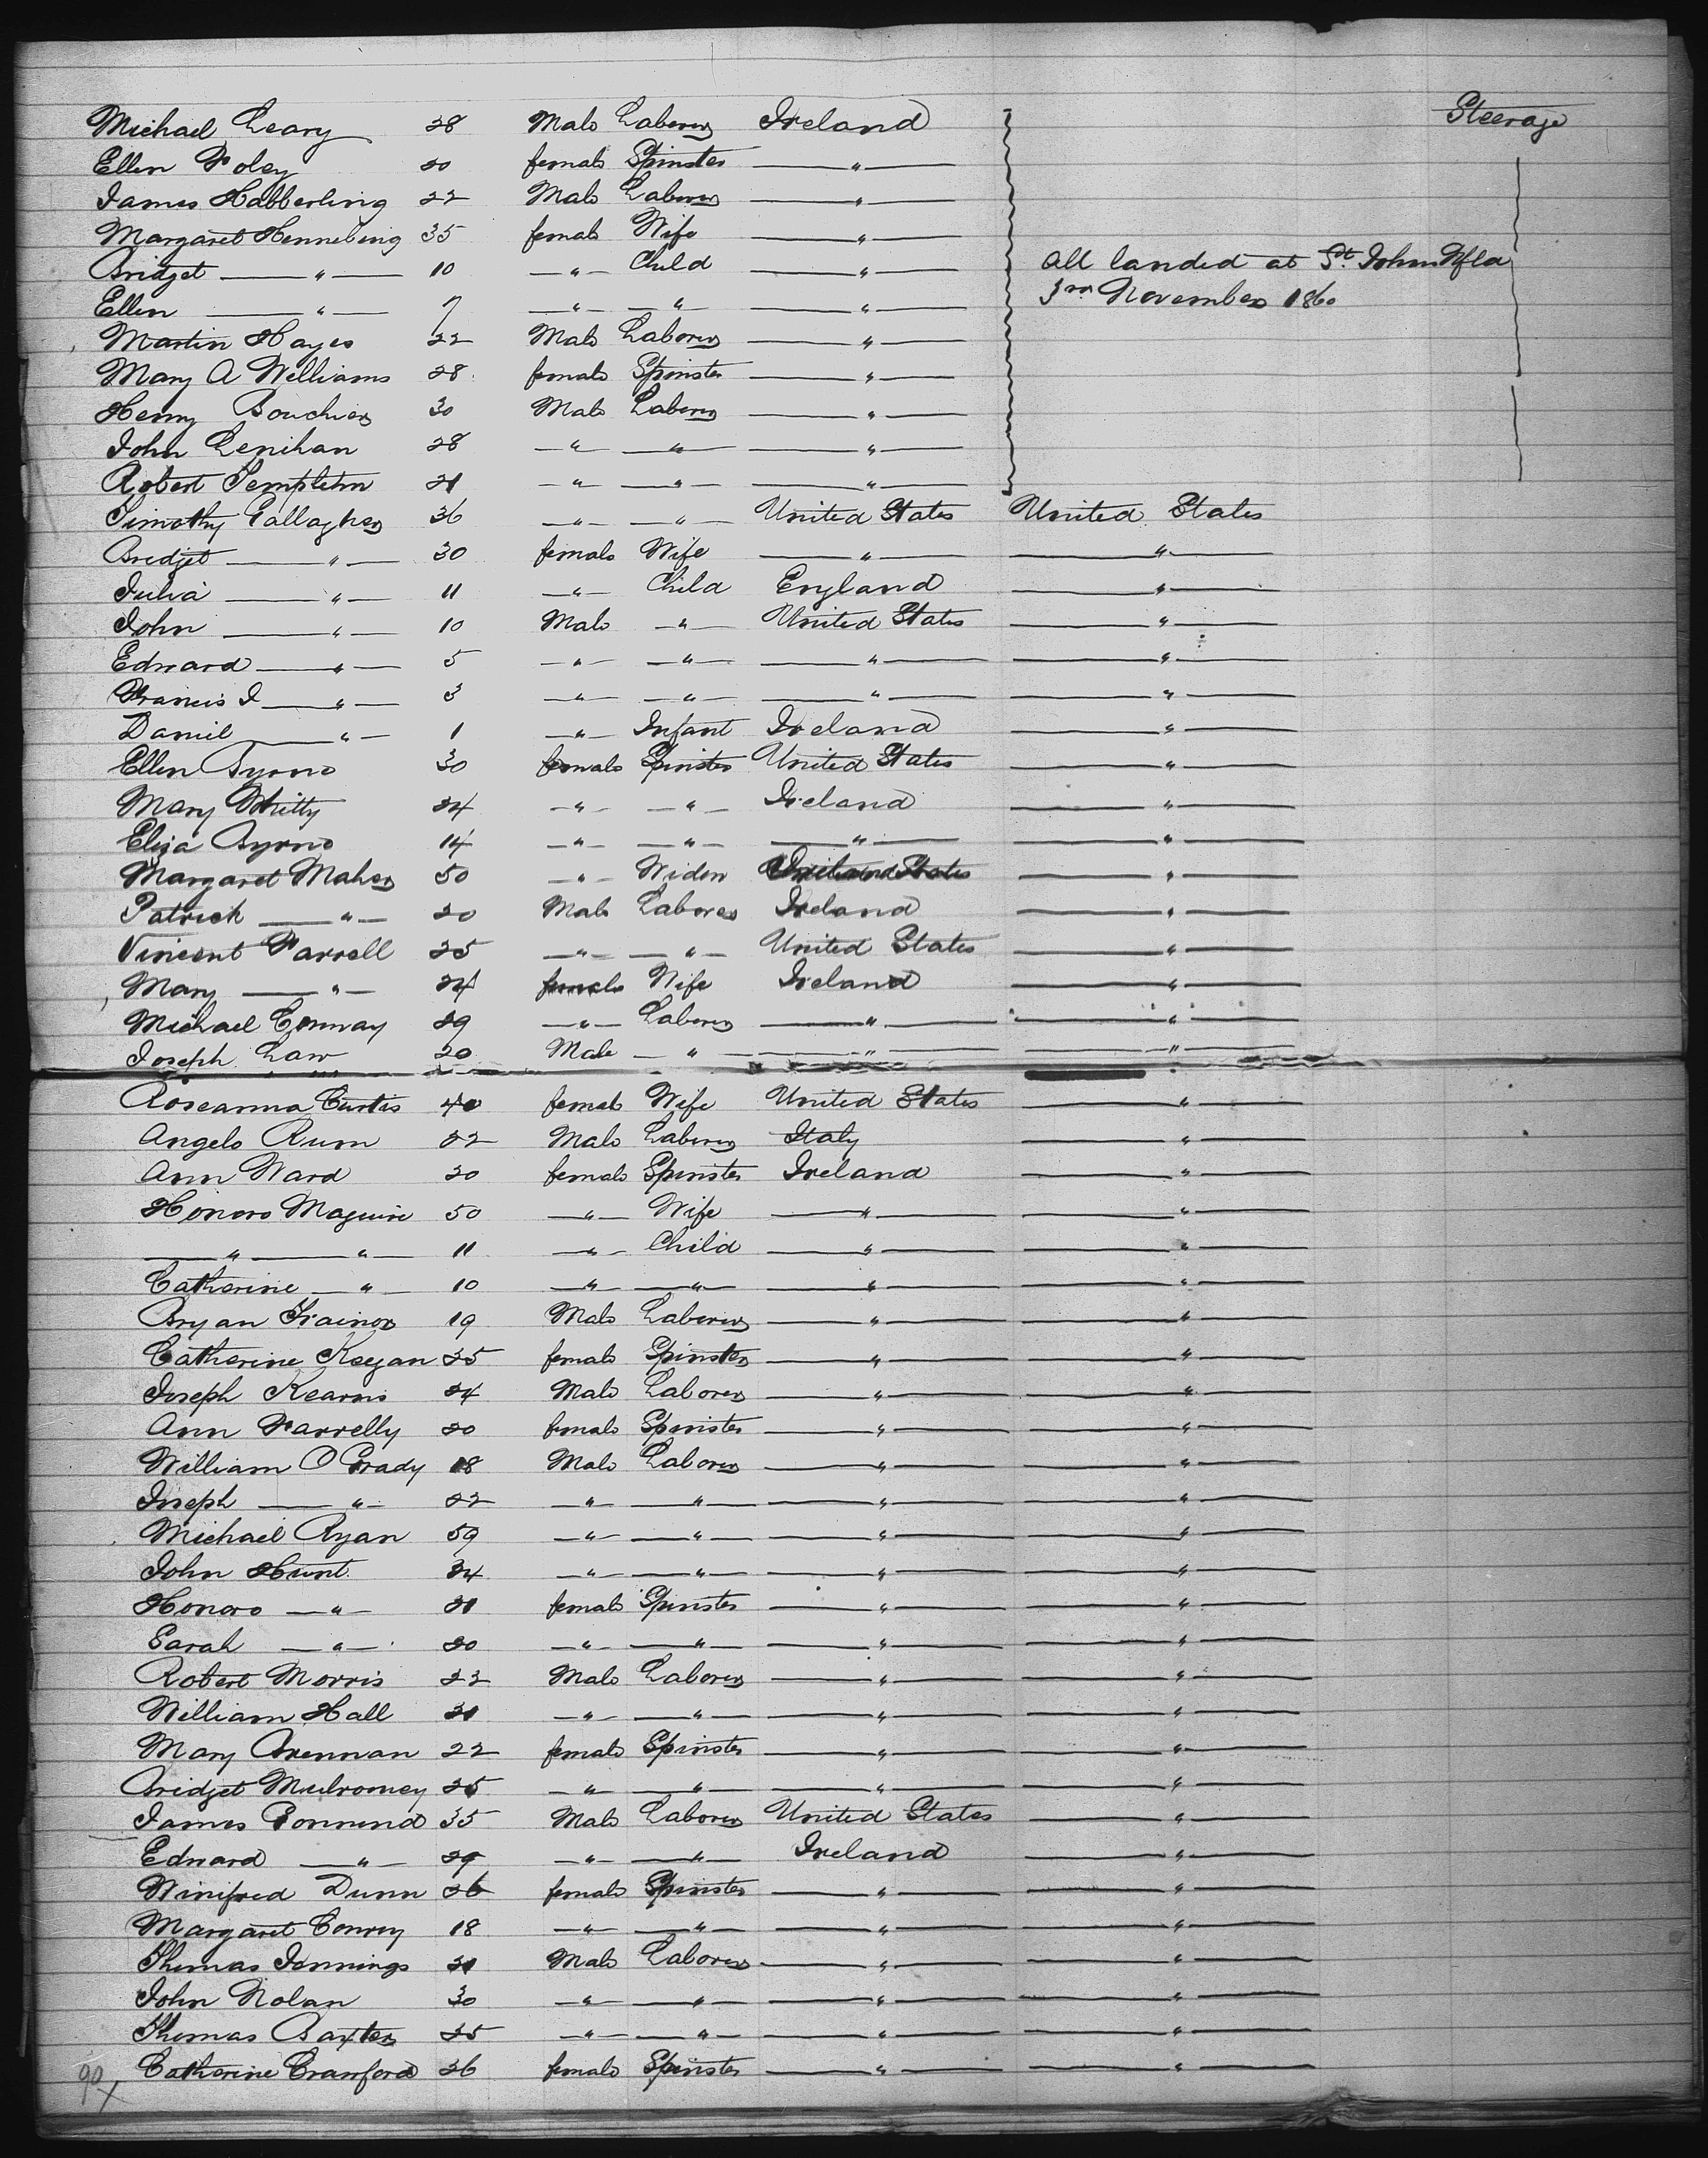 Steerage
Michael Leary 28 Male Laborer Ireland
Ellen Foley 20 female Spinster — " —
James Habberling 22 Male Laborer — " —
Margaret Hennebeng 35 female Wife — " —
Bridget — " — 10 — " — Child — " — All landed at St. John Nfld
Ellen — " — 7 — " — — " — — " — 3rd November 1860
Martin Hayes 22 Male Laborer — " —
Mary A Williams 28 female Spinster — " —
Henry Bouchier 30 Male Laborer — " —
John Lenihan 28 — " — — " — — " —
Robert Templeton 21 — " — — " — — " —
Timothy Gallagher 36 — " — — " — United States United States
Bridget — " — 30 female Wife — " — — " —
Julia — " — 11 — " — Child England — " —
John — " — 10 Male — " — United States — " —
Edward — " — 5 — " — — " — — " — — " —
Francis J — " — 3 — " — — " — — " — — " —
Daniel — " — 1 — " — Infant Ireland — " —
Ellen Byrne 30 female Spinster United States — " —
Mary Whitty 24 — " — — " — Ireland — " —
Eliza Byrne 14 — " — — " — — " — — " —
Margaret Maher 50 — " — Widow United States — " —
Patrick — " — 20 Male Laborer Ireland — " —
Vincent Farrell 25 — " — — " — United States — " —
Mary — " — 24 female Wife Ireland — " —
Michael Conway 29 — " — Laborer — " — — " —
Joseph Law 20 Male — " — — " — — " —
Roseanna Curtis 40 female Wife United States — " —
Angelo Rum 22 Male Laborer Italy — " —
Ann Ward 20 female Spinster Ireland — " —
Honora Maguire 50 — " — Wife — " — — " —
— " — — " — 11 — " — Child — " — — " —
Catherine — " — 10 — " — — " — — " — — " —
Bryan Trainor 19 Male Laborer — " — — " —
Catherine Keegan 25 female Spinster — " — — " —
Joseph Kearns 24 Male Laborer — " — — " —
Ann Farrelly 20 female Spinster — " — — " —
William O Grady 18 Male Laborer — " — — " —
Joseph — " — 22 — " — — " — — " — — " —
Michael Ryan 59 — " — — " — — " — — " —
John Hunt 24 — " — — " — — " — — " —
Honora — " — 21 female Spinster — " — — " —
Sarah — " — 20 — " — — " — — " — — " —
Robert Morris 22 Male Laborer — " — — " —
William Hall 21 — " — — " — — " — — " —
Mary Brennan 22 female Spinster — " — — " —
Bridget Mulroney 25 — " — — " — — " — — " —
James 35 Male Laborer United States — " —
Edward — " — 29 — " — — " — Ireland — " —
Winifred Dunn 26 female Spinster — " — — " —
Margaret Conroy 18 — " — — " — — " — — " —
Thomas Jennings 21 Male Laborer — " — — " —
John Nolan 30 — " — — " — — " — — " —
Thomas Baxter 25 — " — — " — — " — — " —
Catherine Crawford 26 female Spinster — " — — " —
90